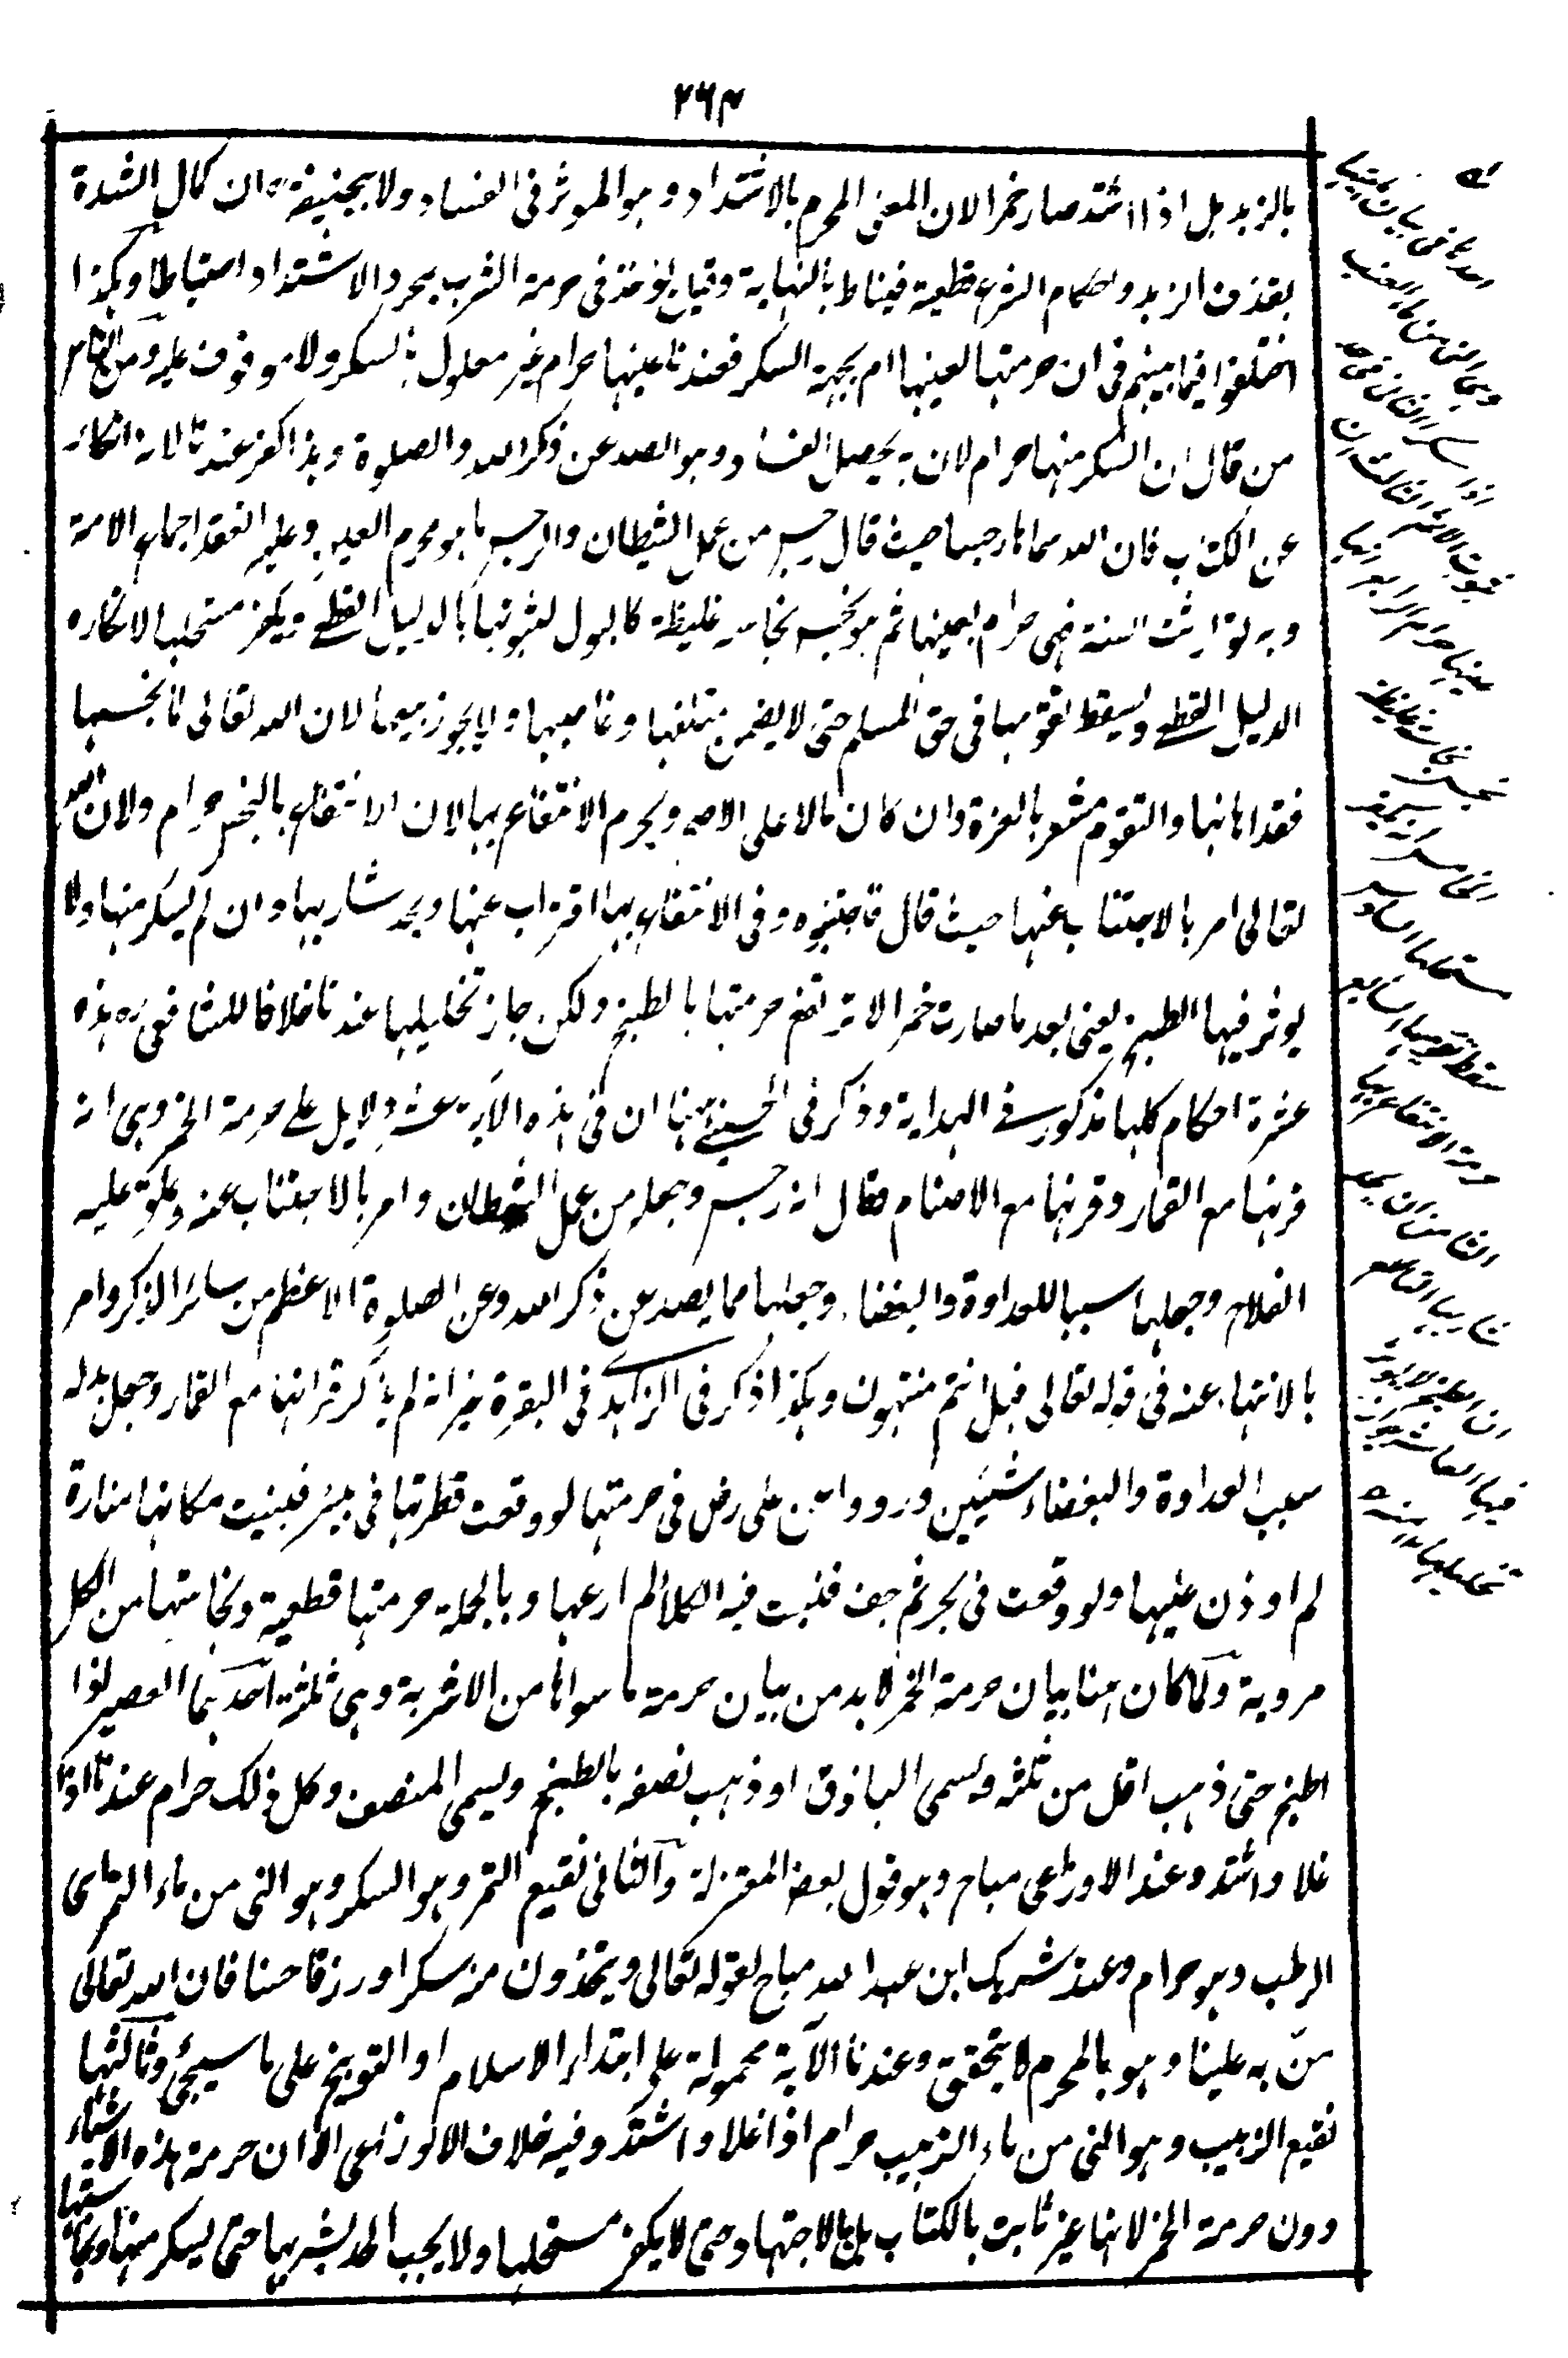 ٢٦٣
بالزبد بل اذا اشتد صار خمرا لان المعنى المحرم بالاشتداد وهو الموثر فى الفساد ولابيحنيفة ره ان كمال الشدة
بقذف الزبد واحكام الشرع قطعية فيناط بالنهاية وقيل يؤخذ فى حرمة الشرب بمجرد الاشتداد احتياطا وهكذا
اختلفوا فيما بينهم فى ان حرمتها لعينها ام بجهة السكر فعندنا عينها حرام غير معلول بالسكر ولا موقوف عليه ومن الناس
من قال ان السكر منها حرام لان به يحصل الفساد وهو الصد عن ذكر الله والصلوة وهذا كفر عندنا لانه انكار
عن الكتاب فان الله سماها رجسا حيث قال رجس من عمل الشيطان والرجس ما هو محرم العين وعليه انعقد اجماع الامة
وبه تواترت السنة فهى حرام بعينها ثم هو نجس نجاسة غليظة كالبول لثبوتها بالدليل القطعى ويكفر مستحلها لانكاره
الدليل القطعى ويسقط تقومها فى حق المسلم حتى لا يضمن متلفها وغاصبها ولا يجوز بيعها لان الله تعالى لما نجسها
فقد اهانها والتقوم مشعر بالعزة وان كان مالا على الاصح ويحرم الانتفاع بها لان الانتفاع بالنجس حرام ولان الله
تعالى امر بالاجتناب عنها حيث قال فاجتنبوه وفى الانتفاع بها اقتراب عنها ويحد شاربها وان لم يسكر منها ولا
يوثر فيها الطبخ يعنى بعد ما صارت خمرا لا ترتفع حرمتها بالطبخ ولكن جاز تخليلها عندنا خلافا للشافعى ره هذه
عشرة احكام كلها مذكور فى الهداية وذكر فى الحسينى ههنا ان فى هذه الآية عشر دلايل على حرمة الخمر وهى انه
قرنها مع القمار وقرنها مع الاصنام فقال انه رجس وجعله من عمل الشيطان وامر بالاجتناب عنه وعلق عليه
الفلاح وجعلها سببا للعداوة والبغضاء وجعلها مما يصد عن ذكر الله وعن الصلوة الاعظم من سائر الذكر وامر
بالانتهاء عنه فى قوله تعالى فهل انتم منتهون وهكذا ذكر فى الزاهدى فى البقرة غير انه لم يذكر قرانها مع القمار وجعل بدله
سبب العداوة والبغضاء شيئين ورووا عن على رض فى حرمتها لو وقعت قطرتها فى بير فبنيت مكانها منارة
لم اوذن عليها ولو وقعت فى بحر ثم جف فنبت فيه الكلأ لم ارعها وبالجملة حرمتها قطعية ونجاستها من الكل
مروية ولما كان هنا بيان حرمة الخمر لا بد من بيان حرمة ما سواها من الاشربة وهى ثلثة احدها العصير اذا
طبخ حتى ذهب اقل من ثلثه ويسمى الباذق او ذهب نصفه بالطبخ ويسمى المنصف وكل ذلك حرام عندنا اذا
غلا واشتد وعند الاوزاعى مباح وهو قول بعض المعتزلة والثانى نقيع التمر وهو السكر وهو التى من ماء التمر اى
الرطب وهو حرام وعند شريك ابن عبد الله مباح لقوله تعالى ويتخذون منه سكرا ورزقا حسنا فان الله تعالى
منّ به علينا وهو بالمحرم لا يتحقق وعندنا الآية محمولة على ابتداء الاسلام او التوبيخ على ما سيجئ وثالثها
نقيع الزبيب وهو التى من ماء الزبيب حرام اذا غلا واشتد وفيه خلاف الاوزاعى الا ان حرمة هذه الاشياء
دون حرمة الخمر لانها غير ثابت بالكتاب بل بالاجتهاد حتى لا يكفر مستحلها ولا يجب الحد بشربها حتى يسكر منها ونجاستها
احدها فى بيان مائيتها
وهى التى من ماء العنب
اذا سكر الثانى فى حد
ثبوت الاسم الثالث ان
عينها حرام الرابع انها
نجس نجاسة غليظة
الخامس انه يكفر
مستحلها السادس
سقط تقومها السابع
حرمة الانتفاع بها
الثامن ان يحد
شاربها التاسع
ان الطبخ لا يوثر
فيها العاشر جواز
تخليلها منه